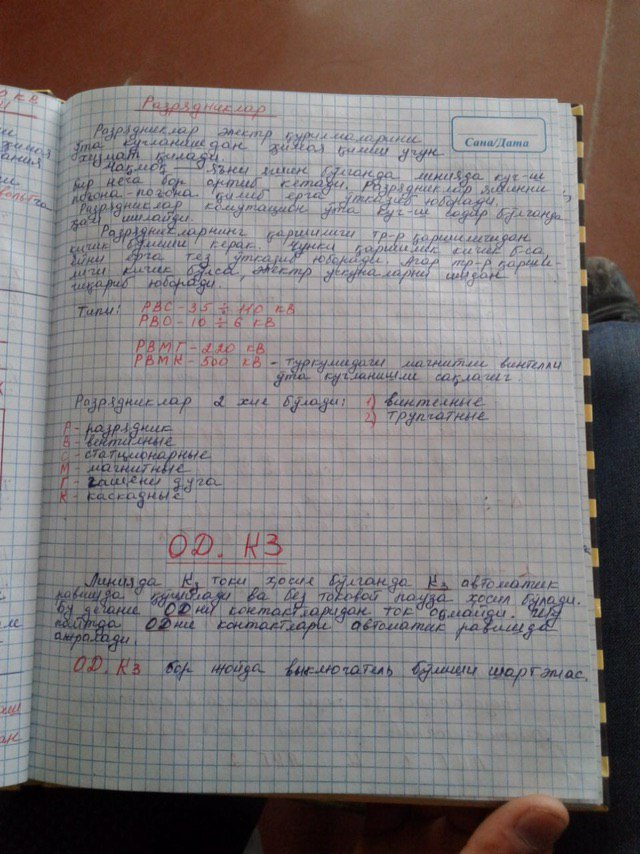 Разрядниклар
Сана/Дата
Разрядниклар электр қурилмаларини
ўта кучланишдан ҳимоя қилиш учун
хизмат қилади.
яъни яшин бўлганда линияда куч-ш
бир неча бор ортиб кетади. Разрядниклар яшинни
поғона-поғона қилиб ерга ўтказиб юборади.
Разрядниклар комутацион ўта куч-ш содир бўлганда
ҳам ишлайди.
Разрядникларнинг қаршилиги тр-р қаршилигидан
кичик бўлиши керак. Чунки қаршилик кичик б-са
ерга тез ўтказиб юборади. Агар тр-р қарши-
лиги кичик бўлса, электр ускуналарни ишдан
чиқариб юборади.
Типи: РВС-35 ÷ 110 кВ
РВО-10 ÷ 6 кВ
РВМГ-220 кВ
РВМК-500 кВ - туркумидаги магнитли винтелли
ўта кучланишли сақлагич.
Разрядниклар 2 хил бўлади: 1) винтелные
2) трупчатные
Р- разрядник
В- вентилные
С- статционарные
М- магнитные
Г- гашени дуга
К- каскадные
ОД. КЗ
Линияда Кз токи ҳосил бўлганда Кз автоматик
равишда қўшилади ва без токовой пауза ҳосил бўлади.
Бу дегани ОДни контактларидан ток оқмайди. Шу
пайтда ОДни контактлари автоматик равишда
ажралади.
ОД. Кз бор жойда выключатель бўлиши шартэмас.